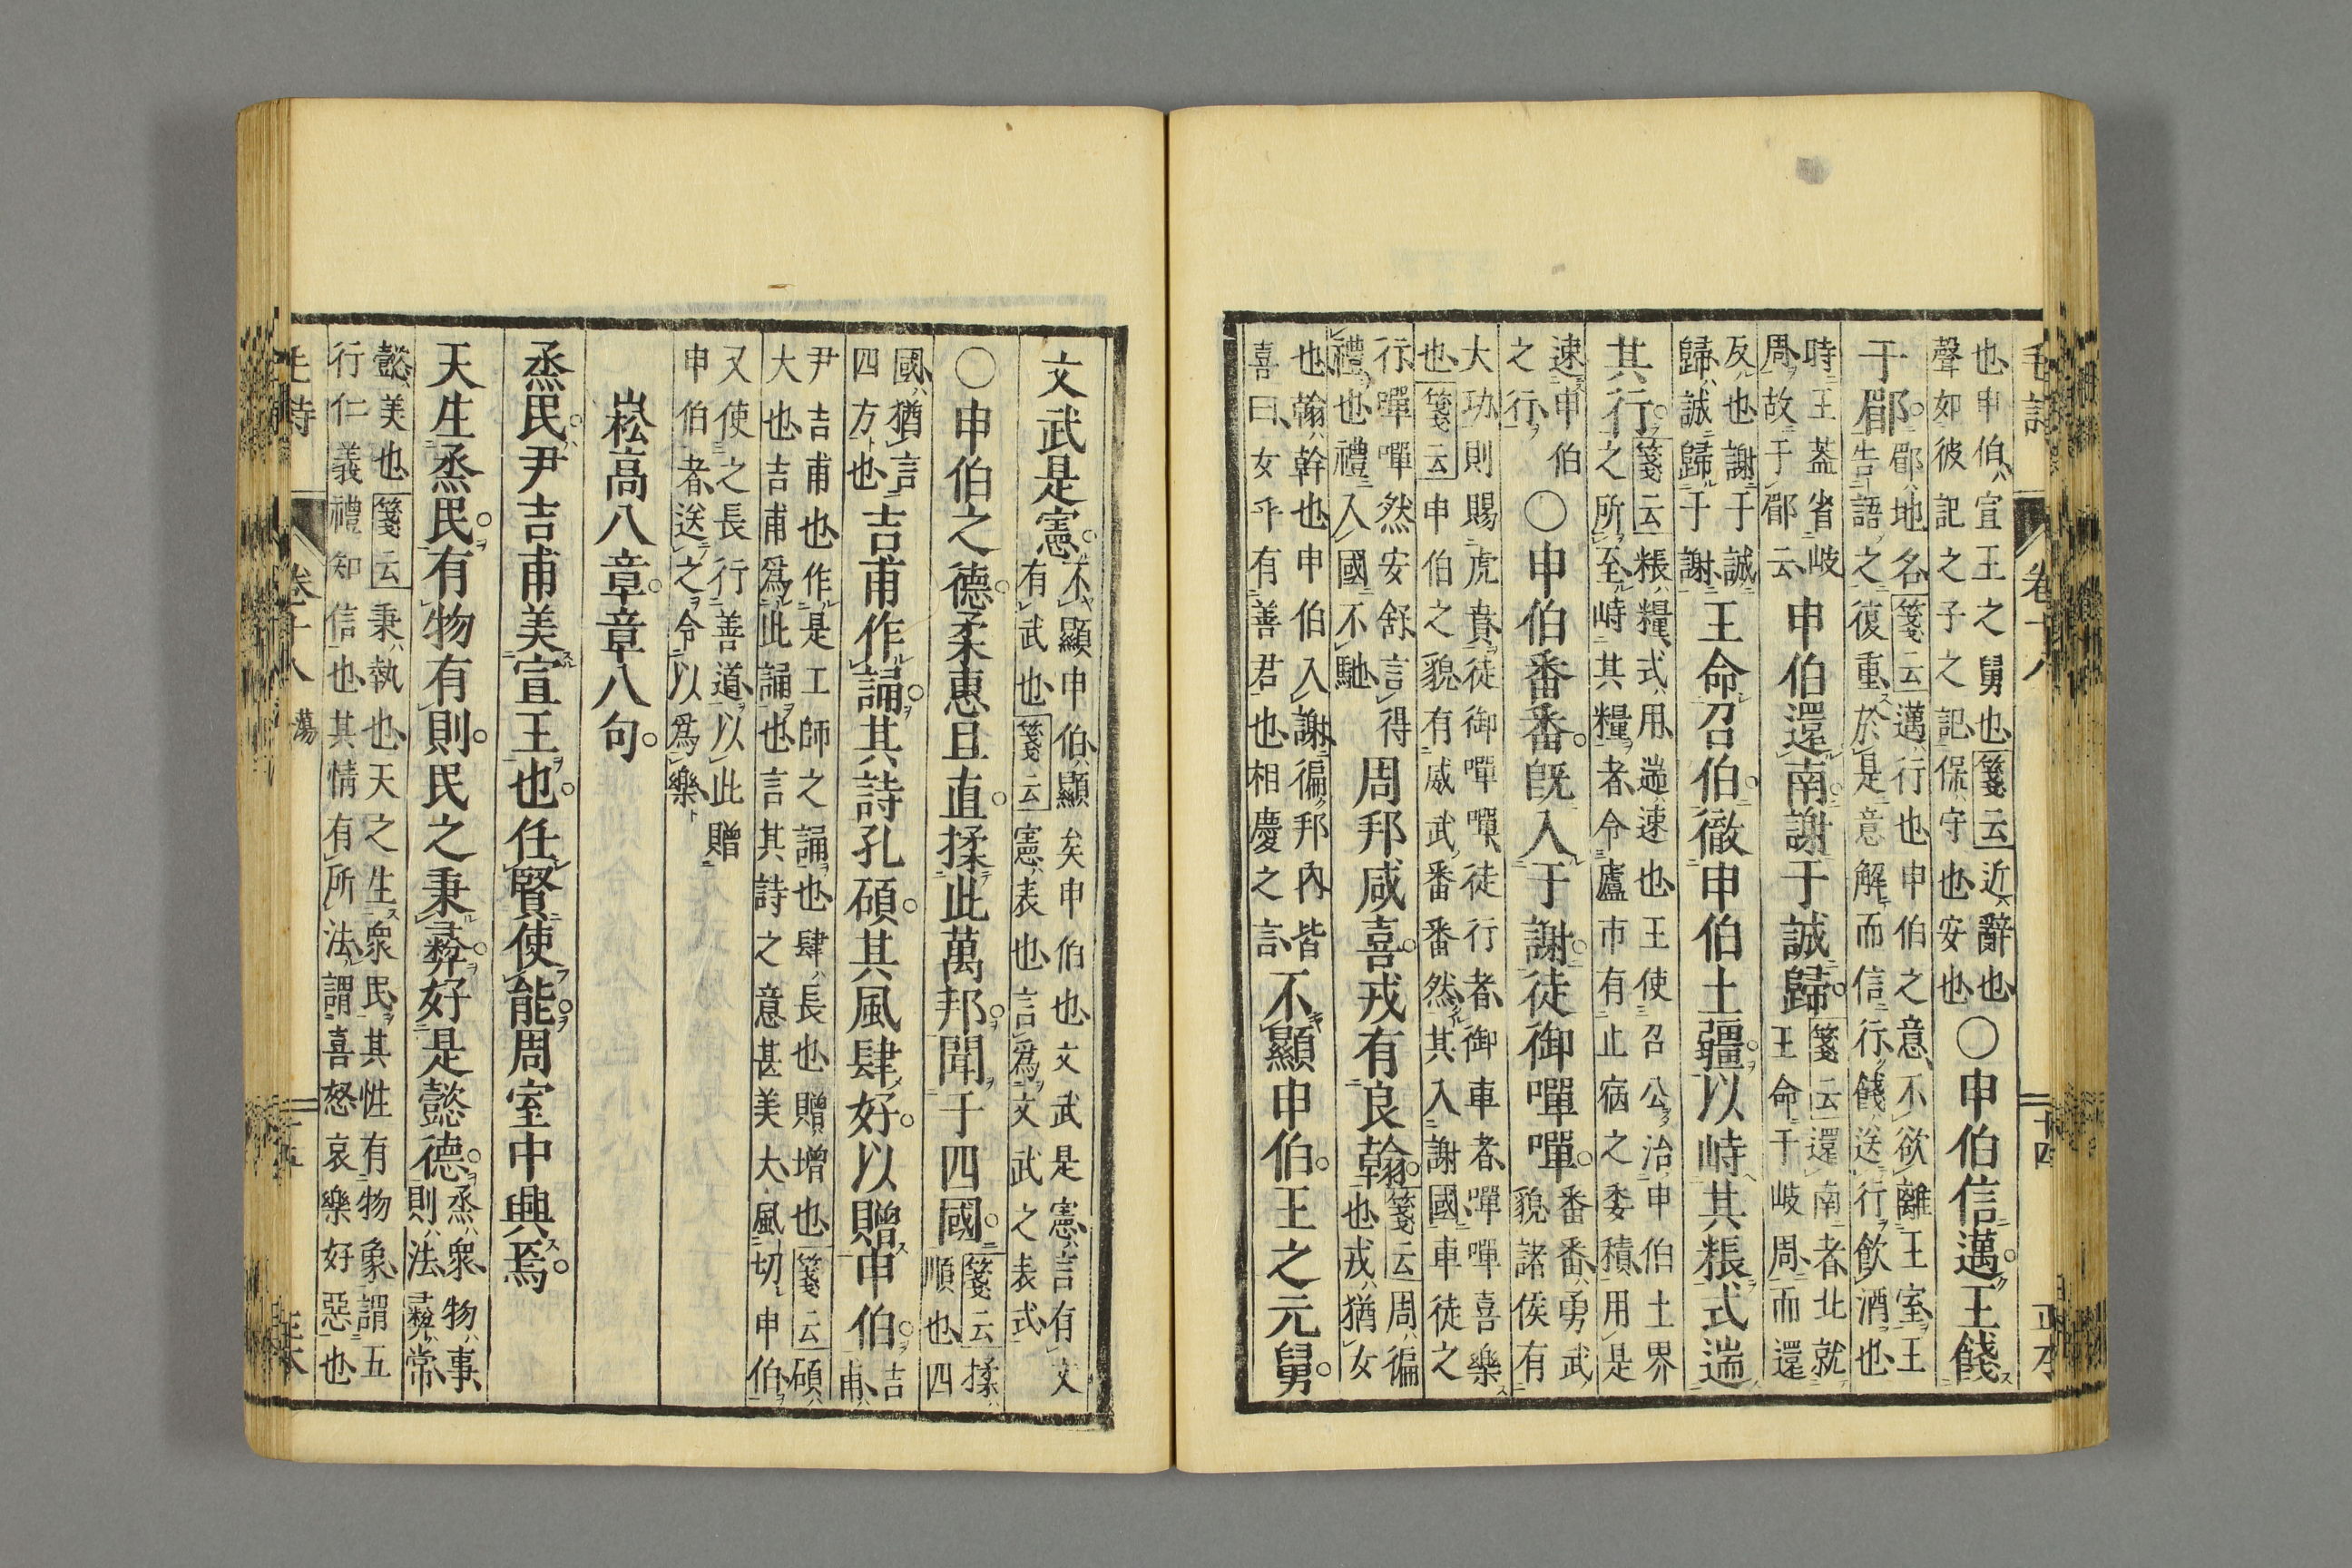 毛詩
卷十八
二十四
也申伯宣王之舅也箋云近辭也
聲如彼記之子之記保守也安也
○申伯信邁王餞
于郿
郿地名箋云邁行也申伯之意不欲離王室王
告語之復重於是意解而信行餞送行飲酒也
時王葢省岐
周故于郿云
申伯還南謝于誠歸
箋云還南者北就
王命于岐周而還
反也謝于誠
歸誠歸于謝
王命召伯徹申伯土疆以峙其粻式遄
其行
箋云粻糧式用遄速也王使召公治申伯土界
之所至峙其糧者令廬市有止病之委積用是
速申伯
之行
○申伯番番旣入于謝徒御嘽嘽
番番勇武
貌諸侯有
大功則賜虎賁徒御嘽嘽徒行者御車者嘽嘽喜樂
也箋云申伯之貌有威武番番然其入謝國車徒之
行嘽嘽然安舒言得
禮也禮入國不馳
周邦咸喜戎有良翰
箋云周徧
也戎猶女
也翰幹也申伯入謝徧邦內皆
喜曰女乎有善君也相慶之言
不顯申伯王之元舅
文武是憲
不顯申伯顯矣申伯也文武是憲言有文
有武也箋云憲表也言爲文武之表式
○申伯之德柔惠且直揉此萬邦聞于四國
箋云揉
順也四
國猶言
四方也
吉甫作誦其詩孔碩其風肆好以贈申伯
吉
甫
尹吉甫也作是工師之誦也肆長也贈增也箋云碩
大也吉甫爲此誦也言其詩之意甚美大風切申伯
又使之長行善道以此贈
申伯者送之令以爲樂
崧高八章章八句
烝民尹吉甫美宣王也任賢使能周室中興焉
天生烝民有物有則民之秉彞好是懿德
烝衆物事
則法彞常
懿美也箋云秉執也天之生衆民其性有物象謂五
行仁義禮知信也其情有所法謂喜怒哀樂好惡也
卷十八
蕩